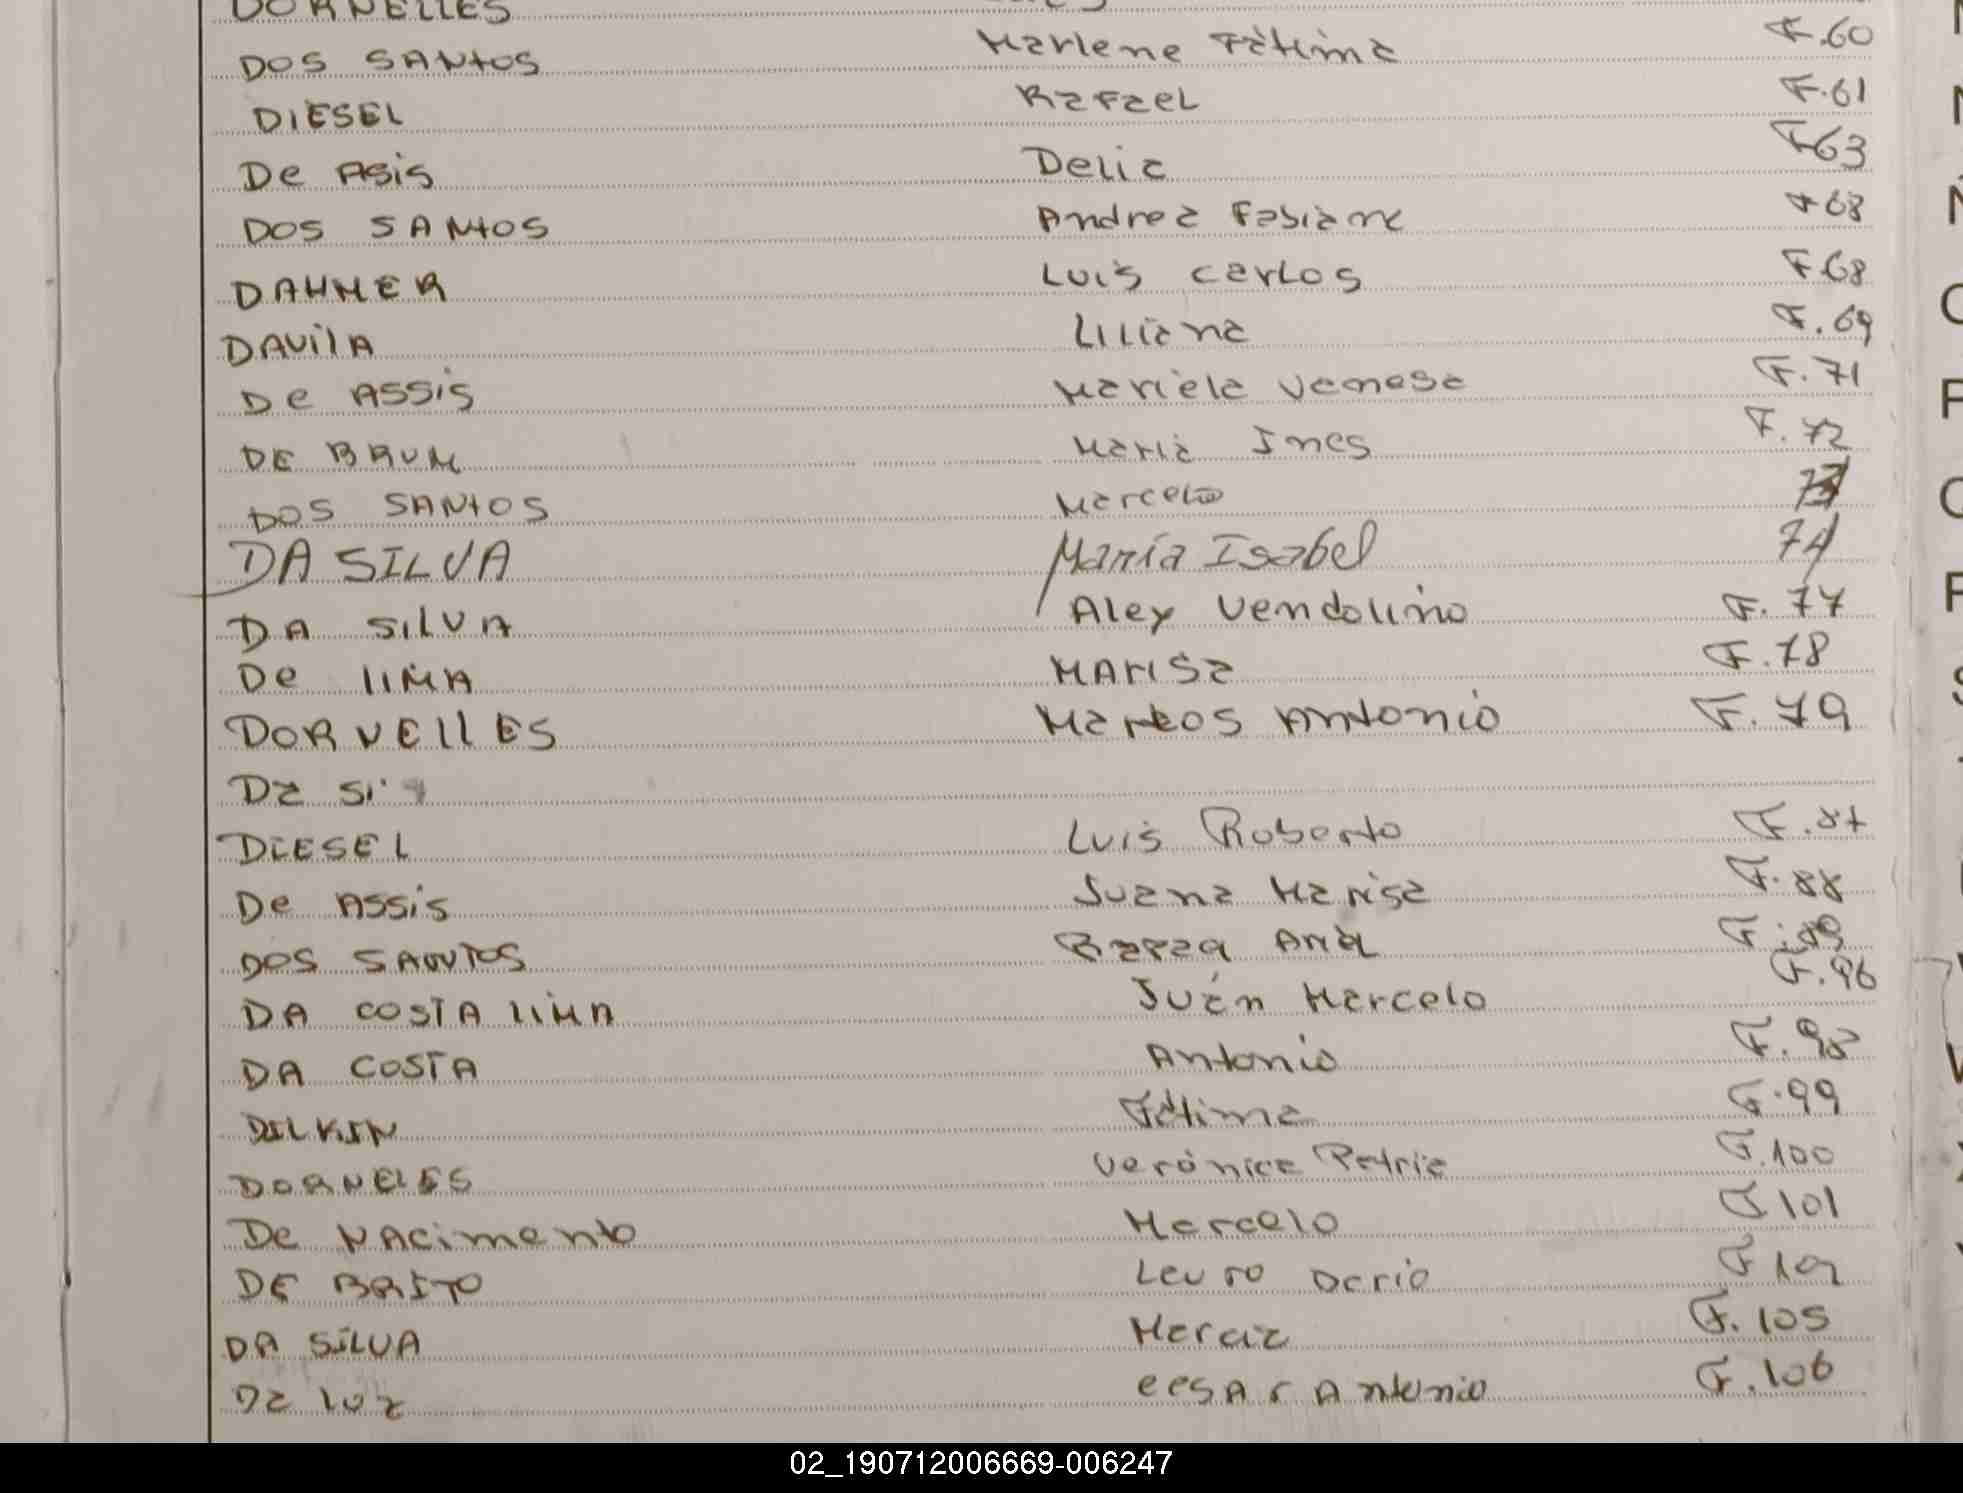 DORNELLES
DOS SANTOS Marlene Fátima F.60
DIESEL Rafael F.61
De Asis Delia F63
DOS SANTOS Andrea Fabiane F68
DAHMER Luis Carlos F.68
DAVilA Liliana F.69
De Assis Mariela Vanesa F.71
DE BRUM Maria Ines F.72
DOS SANTOS Marcelo 73
DA SILVA María Isabel 74
DA SILVA Alex Vendolino F.77
De LIMA MARISa F.78
DORNELLES Markos Antonio F.79
Da Si
DIESEL Luis Roberto F.87
De Assis Juana Marisa F.88
DOS SANTOS Ana F.89
DA COSTA LIMA Juán Marcelo F.96
DA COSTA Antonio F.98
DILKIN Fátima F.99
DORNELES Verónica Patria F.100
De NAcimento Marcelo F101
DE BRITO Lauro Dario
DA SILVA Marcia F.105
Da luz cesAr Antonio F.106
02_190712006669-006247